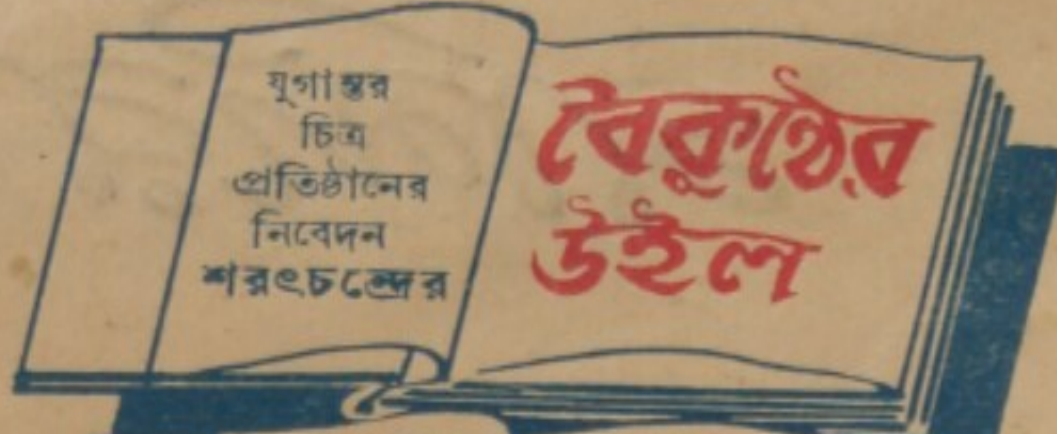 যুগান্তর
চিত্র
প্রতিষ্ঠানের
নিবেদন
শরৎচন্দ্রের
বৈকুণ্ঠের
উইল